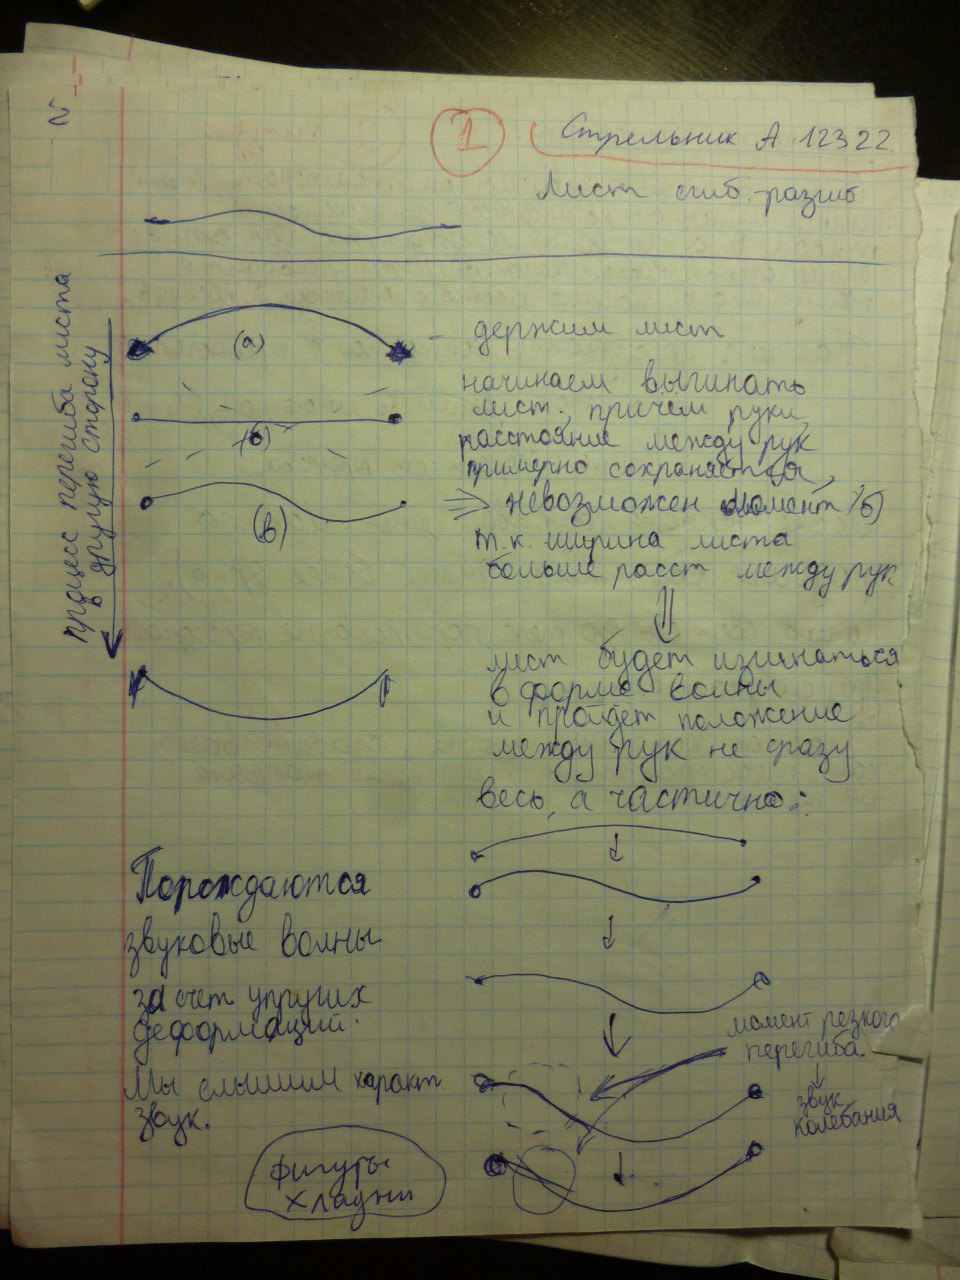 1
Стрельник А 12322
Лист сгиб.-разгиб
процесс перегиба листа
в другую сторону
(а)
держим лист
начинаем выгинать
лист, причём руки,
расстояние между рук
примерно сохраняется,
(б)
(в)
=> невозможен момент (б)
т.к. ширина листа
больше расст между рук
лист будет изгинаться
в форме волны
и пройдет положение
между рук не сразу
весь, а частично:
Порождаются
звуковые волны
за счет упругих
деформаций.
Мы слышим характ.
звук.
момент резкого
перегиба.
звук.
колебания
фигуры
хладни